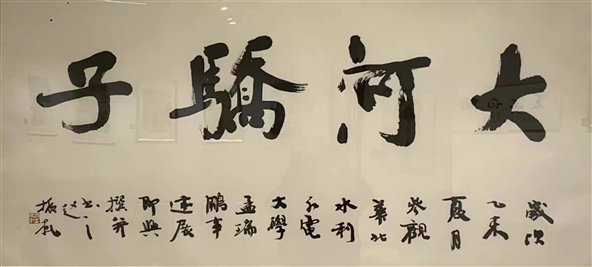 大河驕子
歲次
乙未
夏月
參觀
華北
水利
水電
大學
孟瑞
鵬事
迹展
即興
撰并